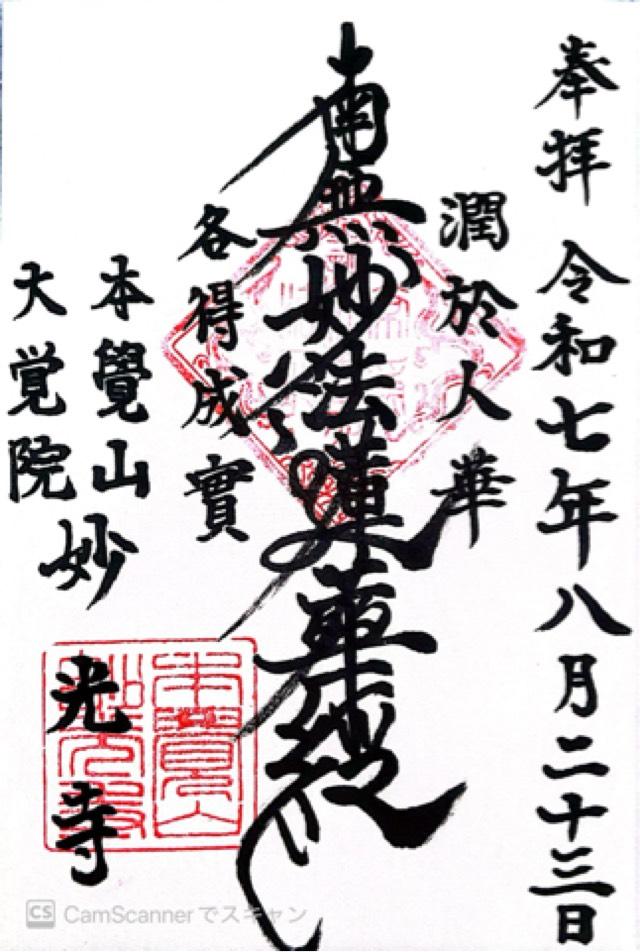 奉拝 令和七年八月二十三日
潤於人華
南無妙法蓮華経
各得成實
本覺山
大覚院
妙光寺
本覺山
妙光寺
CS CamScannerでスキャン